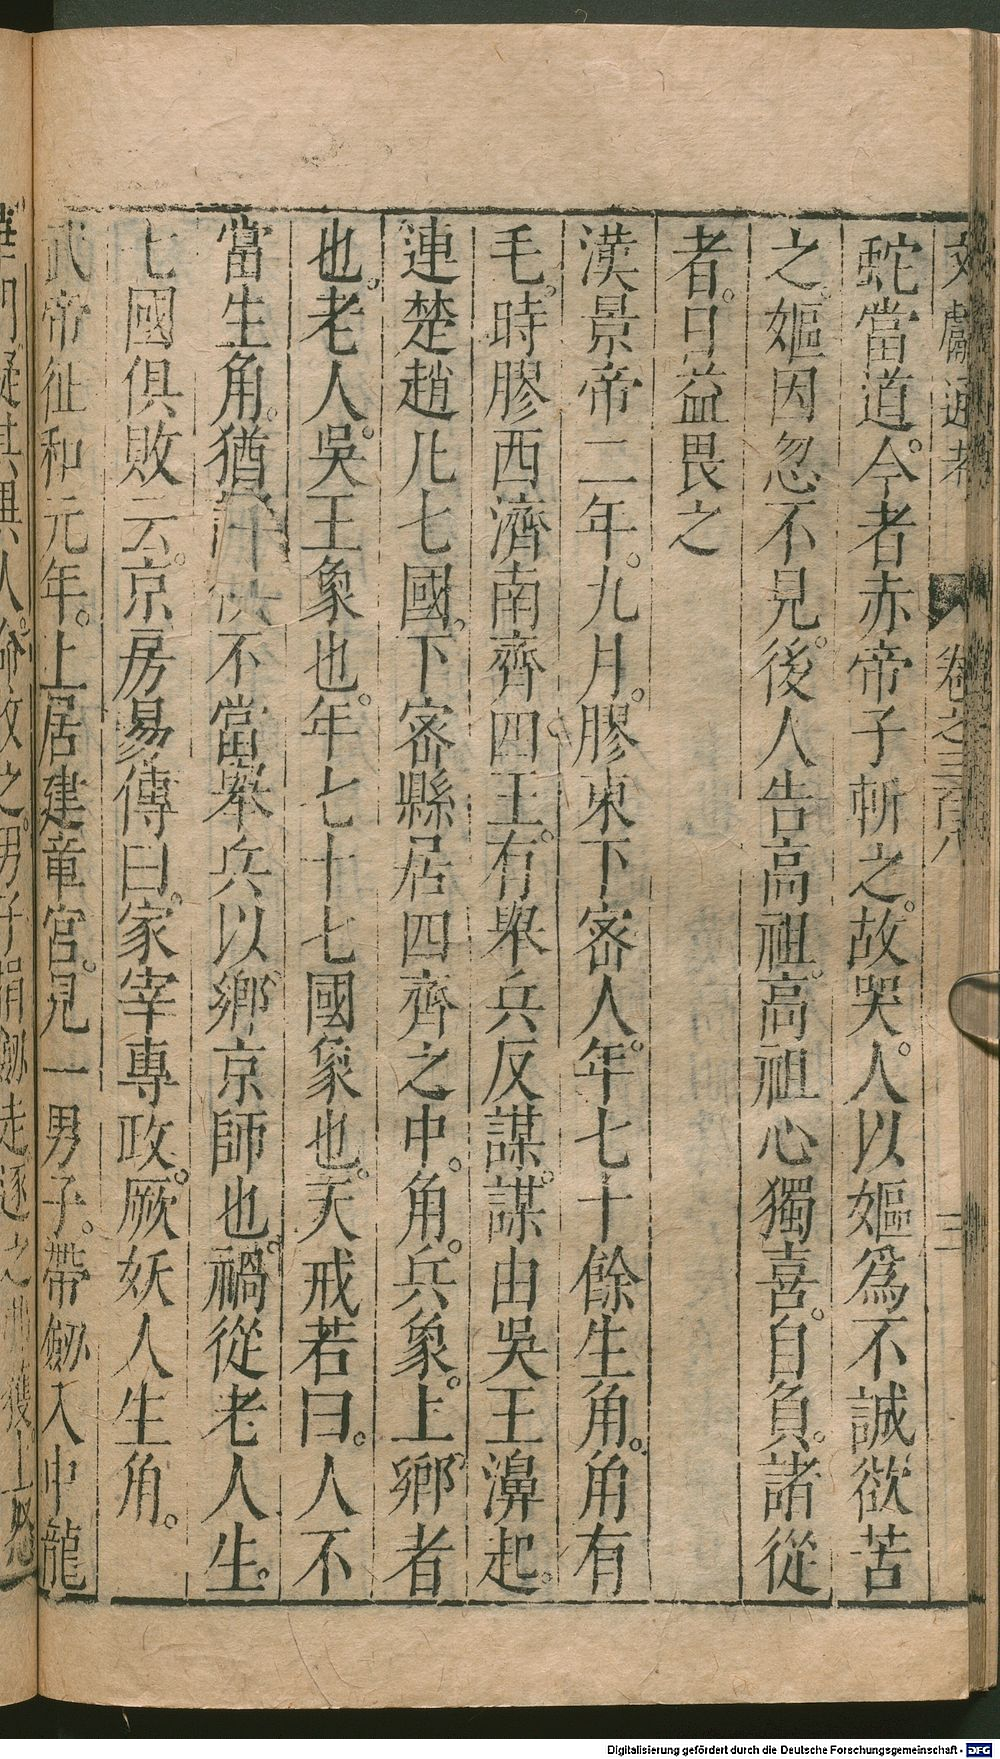 文獻通考　卷之三百八　三
蛇當道。今者赤帝子斬之。故哭。人以嫗爲不誠欲苦
之。嫗因忽不見。後人告高祖。高祖心獨喜。自負。諸從
者。日益畏之
漢景帝二年。九月。膠東下密人。年七十餘生角。角有
毛。時膠西濟南齊四王。有舉兵反謀。謀由吳王濞起。
連楚趙凡七國。下密縣居四齊之中。角。兵象。上鄉者
也。老人。吳王象也。年七十七國象也。天戒若曰。人不
當生角。猶不當舉兵以鄉京師也。禍從老人生。
七國俱敗云。京房易傳曰。冢宰專政。厥妖人生角。
武帝征和元年。上居建章宮。見一男子。帶劒入中龍
華門疑其異人。命收之。男子捐劒走逐之弗獲上怒
Digitalisierung gefördert durch die Deutsche Forschungsgemeinschaft - DFG